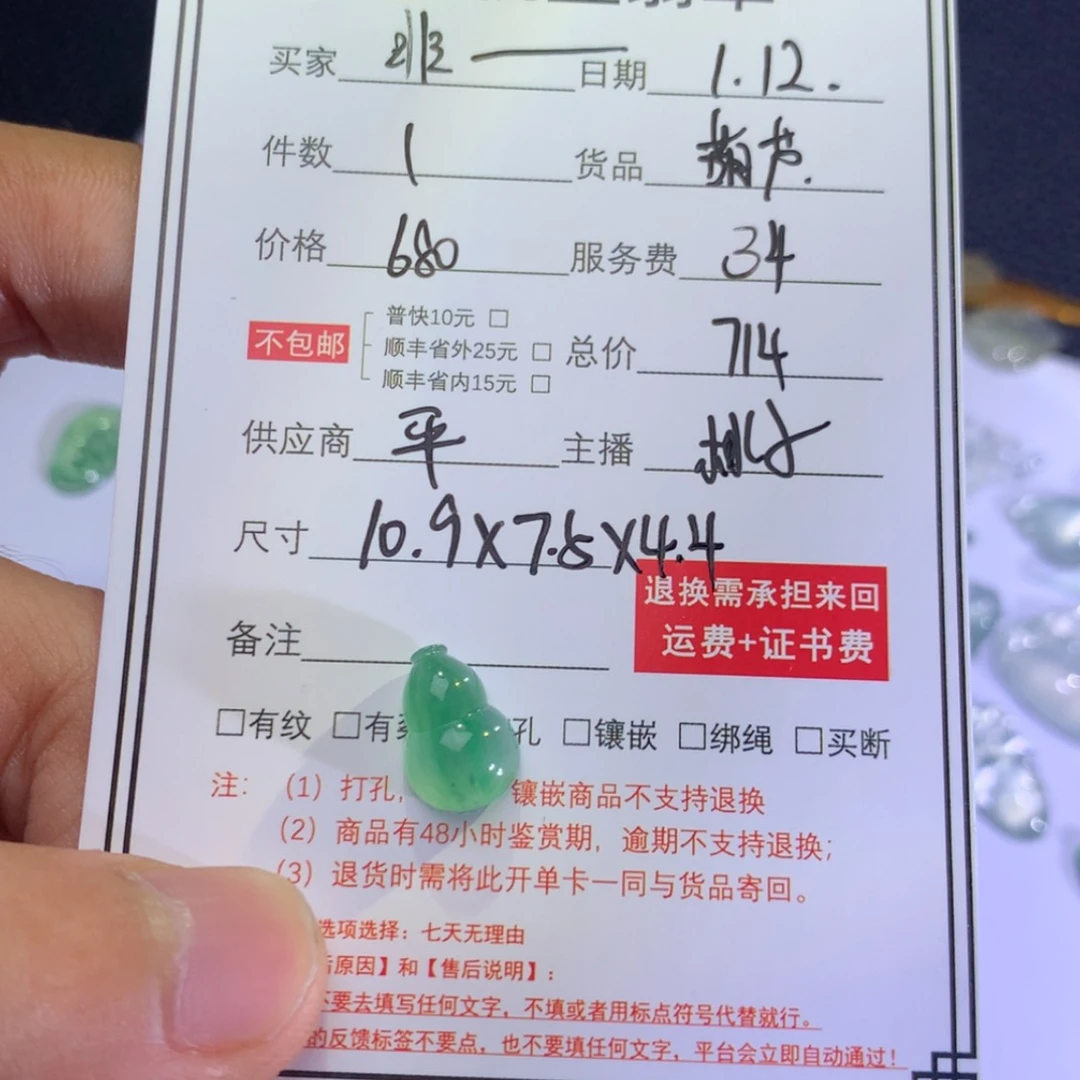 买家 日期 1.12.
件数 1 货品 葫芦.
价格 680 服务费 34
普快10元 □
不包邮 顺丰省外25元 □ 总价 714
顺丰省内15元 □
供应商 平 主播
尺寸 10.9X7.5X4.4
退换需承担来回
运费+证书费
备注
□有纹 □有 孔 □镶嵌 □绑绳 □买断
注：（1）打孔， 镶嵌商品不支持退换
（2）商品有48小时鉴赏期，逾期不支持退换；
（3）退货时需将此开单卡一同与货品寄回。
选项选择：七天无理由
原因】和【售后说明】：
不要去填写任何文字，不填或者用标点符号代替就行。
的反馈标签不要点，也不要填任何文字，平台会立即自动通过！